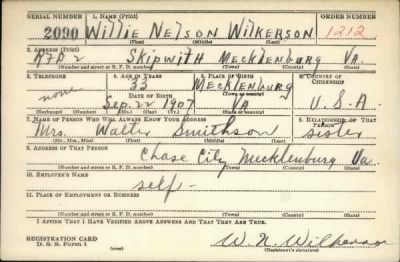 SERIAL NUMBER 1. NAME (Print) ORDER NUMBER
2090 Willie Nelson Wilkerson 1212
(First) (Middle) (Last)
2. ADDRESS (Print)
RFD 2 Skipwith Mecklenburg Va.
(Number and street or R. F. D. number) (Town) (County) (State)
3. TELEPHONE 4. AGE IN YEARS 5. PLACE OF BIRTH 6. COUNTRY OF CITIZENSHIP
none 33 Mecklenburg
DATE OF BIRTH (Town or county)
Sep. 22 1907 Va U.S.A.
(Exchange) (Number) (Mo.) (Day) (Yr.) (State or country)
7. NAME OF PERSON WHO WILL ALWAYS KNOW YOUR ADDRESS 8. RELATIONSHIP OF THAT PERSON
Mrs. Walter Smithson sister
(Mr., Mrs., Miss) (First) (Middle) (Last)
9. ADDRESS OF THAT PERSON
Chase City Mecklenburg Va.
(Number and street or R. F. D. number) (Town) (County) (State)
10. EMPLOYER'S NAME
self -
11. PLACE OF EMPLOYMENT OR BUSINESS
(Number and street or R. F. D. number) (Town) (County) (State)
I AFFIRM THAT I HAVE VERIFIED ABOVE ANSWERS AND THAT THEY ARE TRUE.
REGISTRATION CARD
D. S. S. Form 1 W. N. Wilkerson
(Registrant's signature)